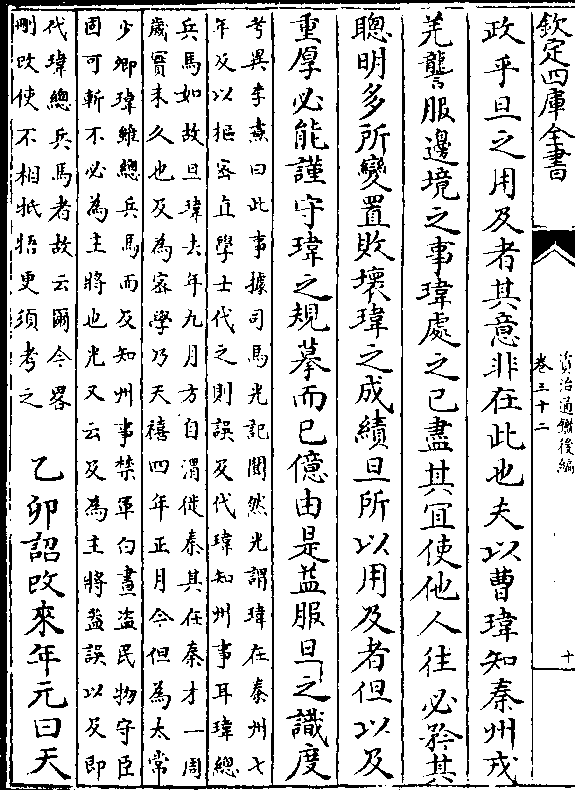 欽定四庫全書
資治通鑑後編
卷三十二
十
政乎旦之用及者其意非在此也夫以曹瑋知秦州戎
羌讋服邊境之事瑋處之已盡其宜使他人往必矜其
聰明多所變置敗壞瑋之成績旦所以用及者但以及
重厚必能謹守瑋之規摹而已億由是益服旦之識度
考異李燾曰此事據司馬光記聞然光謂瑋在秦州七
年及以樞密直學士代之則誤及代瑋知州事耳瑋總
兵馬如故旦瑋去年九月方自渭徙秦其任秦才一周
歲實未久也及為密學乃天禧四年正月今但為太常
少卿瑋雖總兵馬而及知州事禁軍白晝盜民物守臣
固可斬不必為主將也光又云及為主將葢誤以及即
代瑋總兵馬者故云爾今畧
刪改使不相牴牾更須考之
乙卯詔改來年元曰天